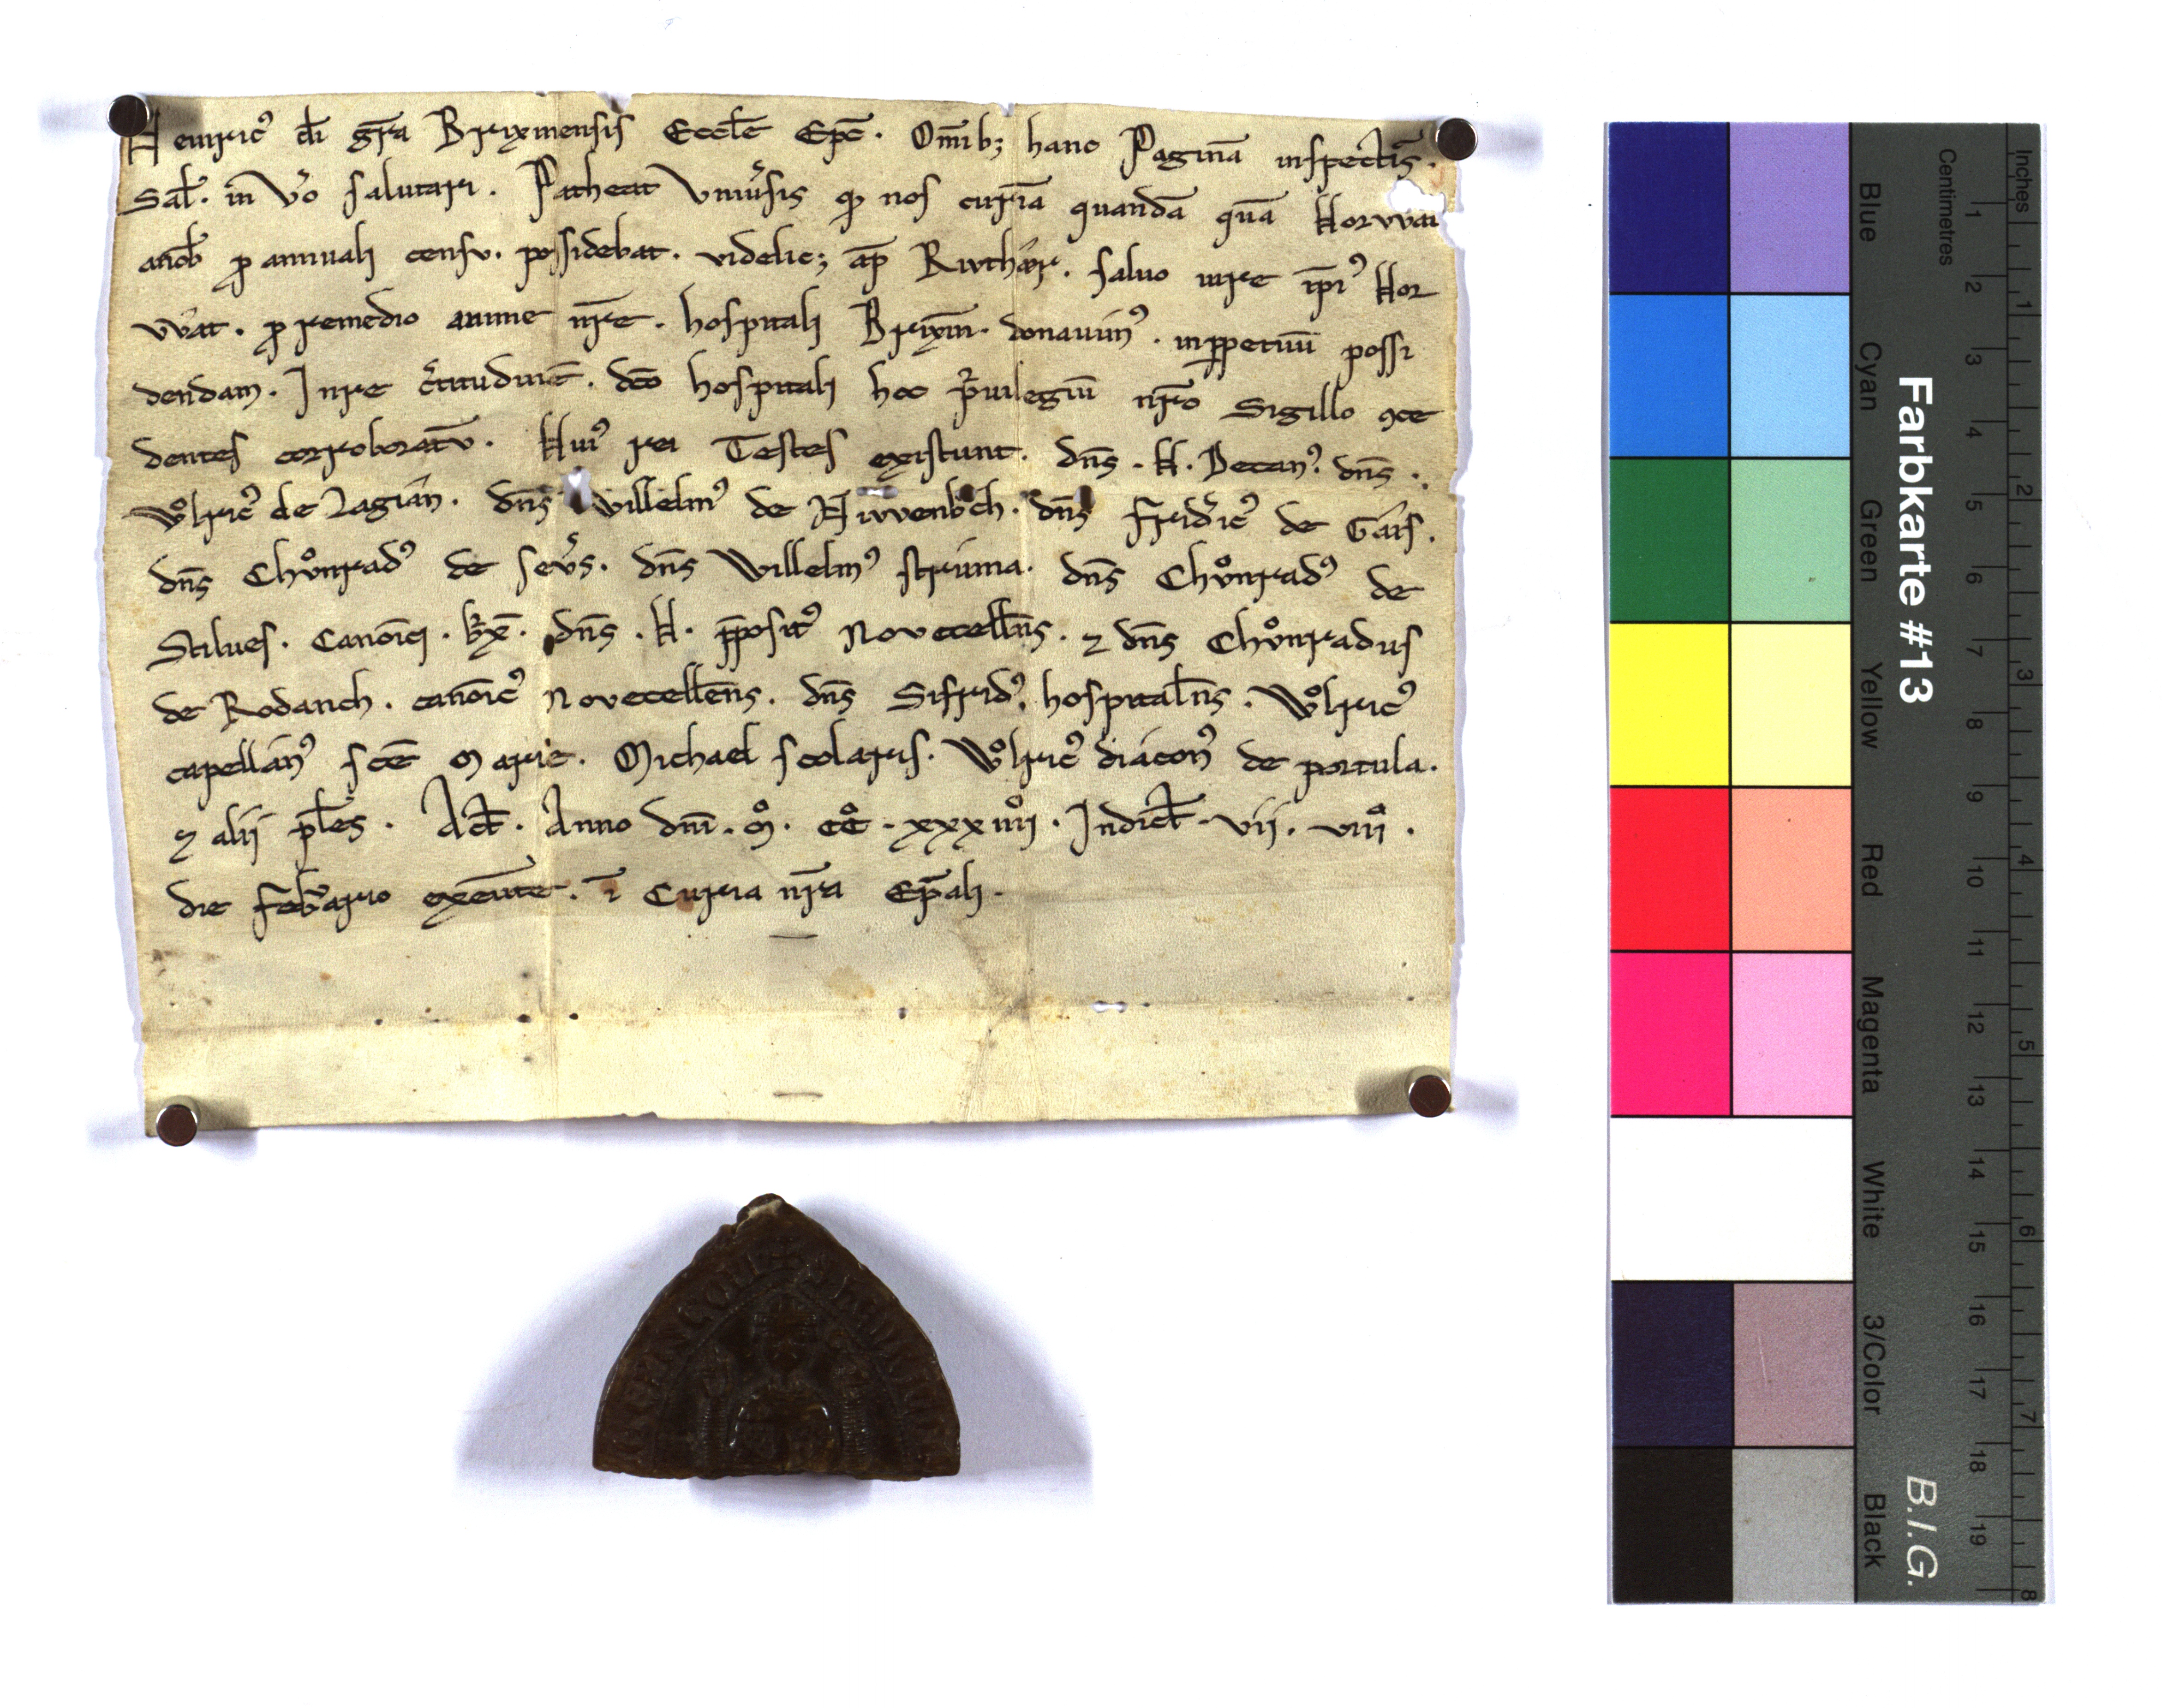 Heinricꝰ di gr̄a Brixinensis Eccl̄e Ep̄c. Om̄ib; hanc Paginā inspectīs.
Sal̄. in v̄o salutari. Patheat Vniu̓sis qđ nos curiā quandā quā Korwat
ꝓ annuali censv. possidebat. videlic; ap̄ . saluo iure ip̄iꝰ Kor
wat. ꝓ remedio anime nr̄e. hospitali Brixin̄. donauimꝰ. inꝑpetuū possi
dendam. In re c̓titudinē. dc̄o hospitali hoc p̓uilegiū nr̄o Sigillo ꝯce
dentes corroboratv̄. Huiꝰ rei Testes existunt. dn̄s. H. Decanꝰ. dn̄s.
Wͦlricꝰ de Lagian. dn̄s Willelmꝰ de Niwenbͦch. dn̄s Frid̓icꝰ de Gars.
dn̄s Chvͦnradꝰ de seu̓s. dn̄s Willelmꝰ struma. dn̄s Chvͦnradꝰ de
Stilues. Canōici. bx̄. dn̄s. H. p̄positꝰ Novecell̄ns. ⁊ dn̄s Chvͦnradus
de Rodanch. canōicꝰ Novecell̄ens. dn̄s Sifridꝰ. hospital̄ns. Wͦlricꝰ
capellanꝰ sc̄e Marie. Michael scolaris. Wͦlricꝰ diaconꝰ de portula.
⁊ alii pl̄es. Act̄. Anno dn̄i. Mͦ. CCͦ. xxxiiiiͦ. Indict̄. vii. viiiͦ.
die Febr̓ario exeūnte. ī Curia nr̄a Ep̄ali.
Farbkarte #13
B.I.G.
Centimetres
Inches
Blue
Cyan
Green
Yellow
Red
Magenta
White
3/Color
Black
1 2 3 4 5 6 7 8 9 10 11 12 13 14 15 16 17 18 19
1 2 3 4 5 6 7 8